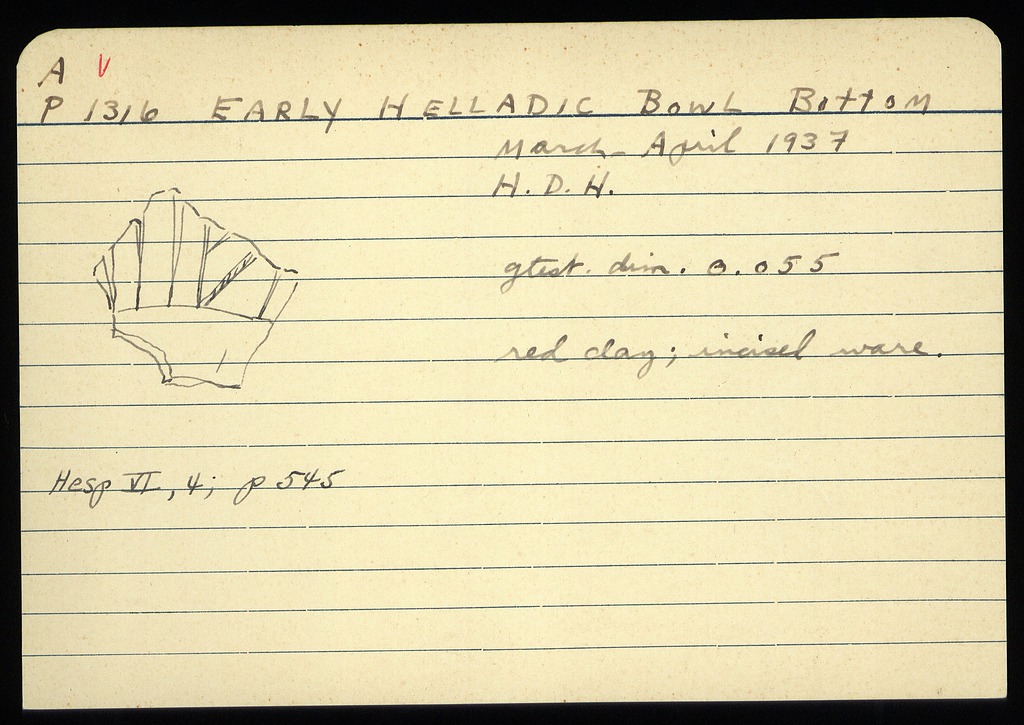 A V
P 1316 EARLY HELLADIC BOWL BOTTOM
March-April 1937
H. D. H.
gtest. dim. 0.055
red clay; incised ware.
Hesp VI, 4; p 545